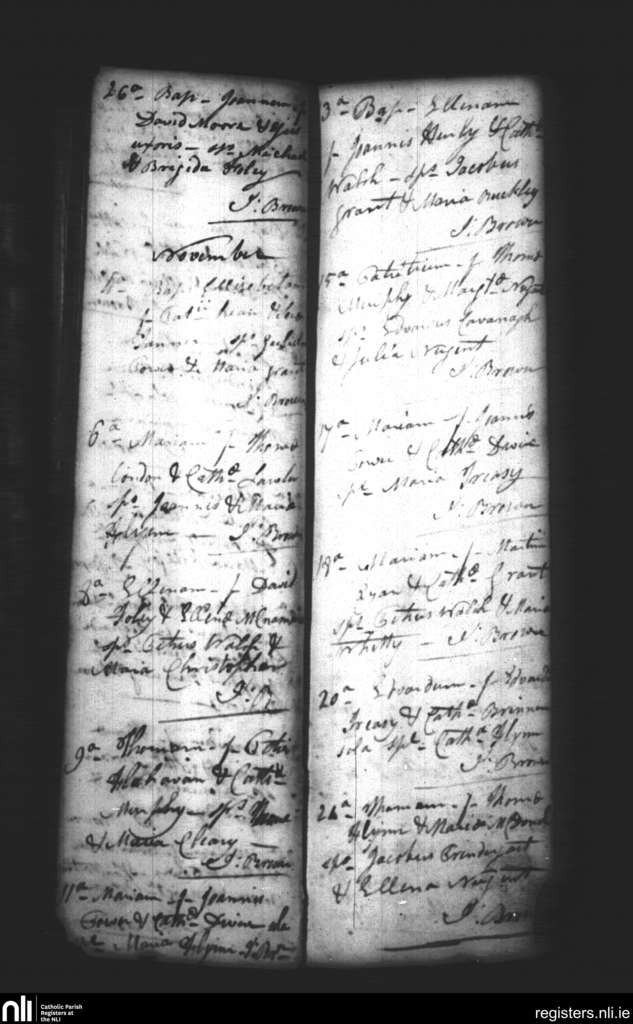 26a Bap - Joannem f
David Moore & ejus
uxoris - sps Michael
& Brigida Foley
J: Brown
November
Bap Ellizebetam
f Patii Kean
sps
& Maria Grant
J: Brown
6a Mariam f Thomæ
Condon & Cathe Lawlor
sps Joannis & Maria
Flynne - J: Brown
8a Ellenam - f David
Foley & Ellenæ McNamara
sps Petrus Walsh &
Maria Christopher
J: B
9a Thomam f Petri
Hahavan & Cath
Murphy sps Thomæ
& Maria Cleary -
J: Brown
11a Mariam f Joannis
Power & Cathe Divine
sps Maria Flynn J: Brn
3a Bap - Ellenam
f Joannis Hurly & Cathe
Walsh - sps Jacobus
Grant & Maria Buckley
J: Brown
15a Patritium f Thomæ
Murphy & Margte Nugent
sps Edvardus Cavanagh
& Julia Nugent
J: Brown
17a Mariam f Joannis
Power & Cathe Divine
sps Maria Treasy
J: Brown
18a Mariam f Martin
Ryan & Cathe Grant
sps Petrus Walsh & Maria
Whitty - J: Brown
20a Edvardum f Edvardi
Treasy & Catha Brinnan
sola sps Catha Flynn
J: Brown
26a Thomam f Thomæ
Flynn & Maria McDonal
sps Jacobus Prendergast
& Ellena Nugent
J: Brown
nli
Catholic Parish
Registers at
the NLI
registers.nli.ie